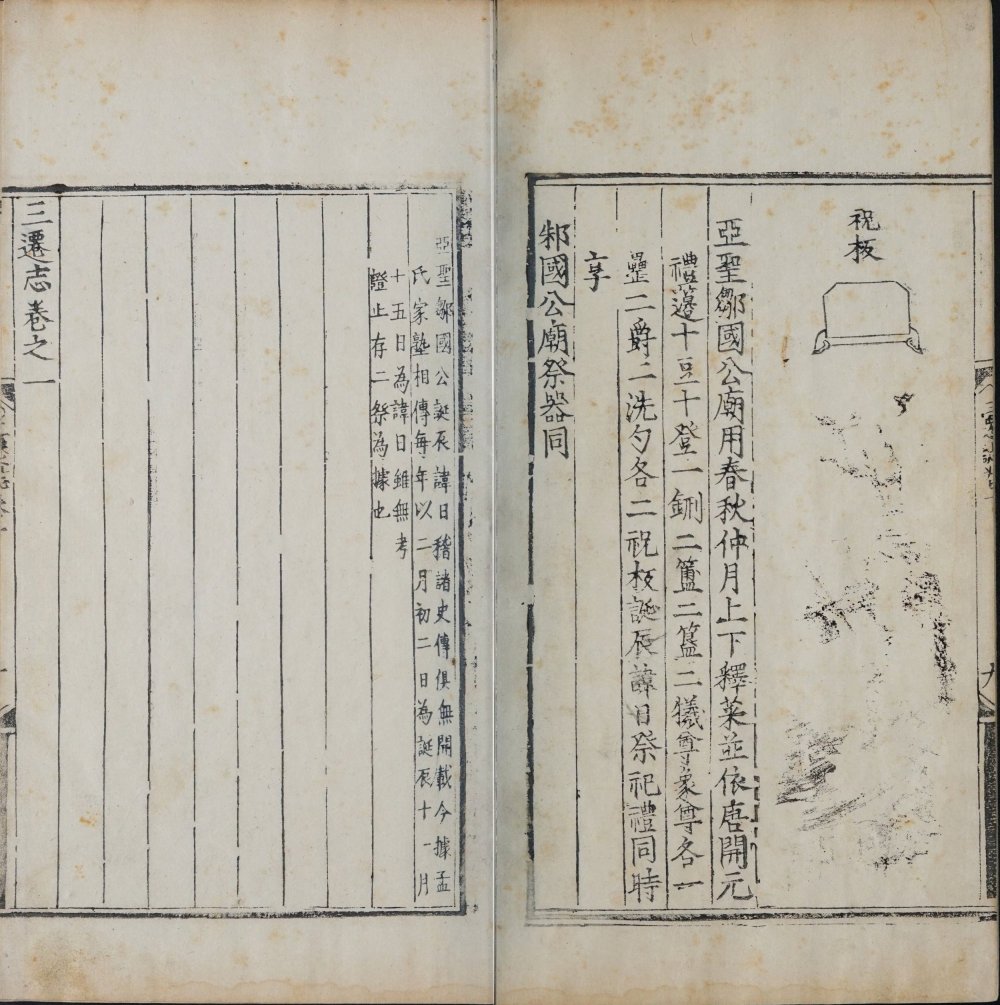 祝板
亞聖鄒國公廟用春秋仲月上下釋菜並依唐開元
禮籩十豆十登一鉶二簠二簋二犧尊象尊各一
罍二爵二洗勺各二祝板誕辰諱日祭祀禮同時
享
邾國公廟祭器同
亞聖鄒國公誕辰諱日稽諸史傳俱無開載今據孟
氏家塾相傳每年以二月初二日為誕辰十一月
十五日為諱日雖無考
證止存二祭為據也
三遷志卷之一